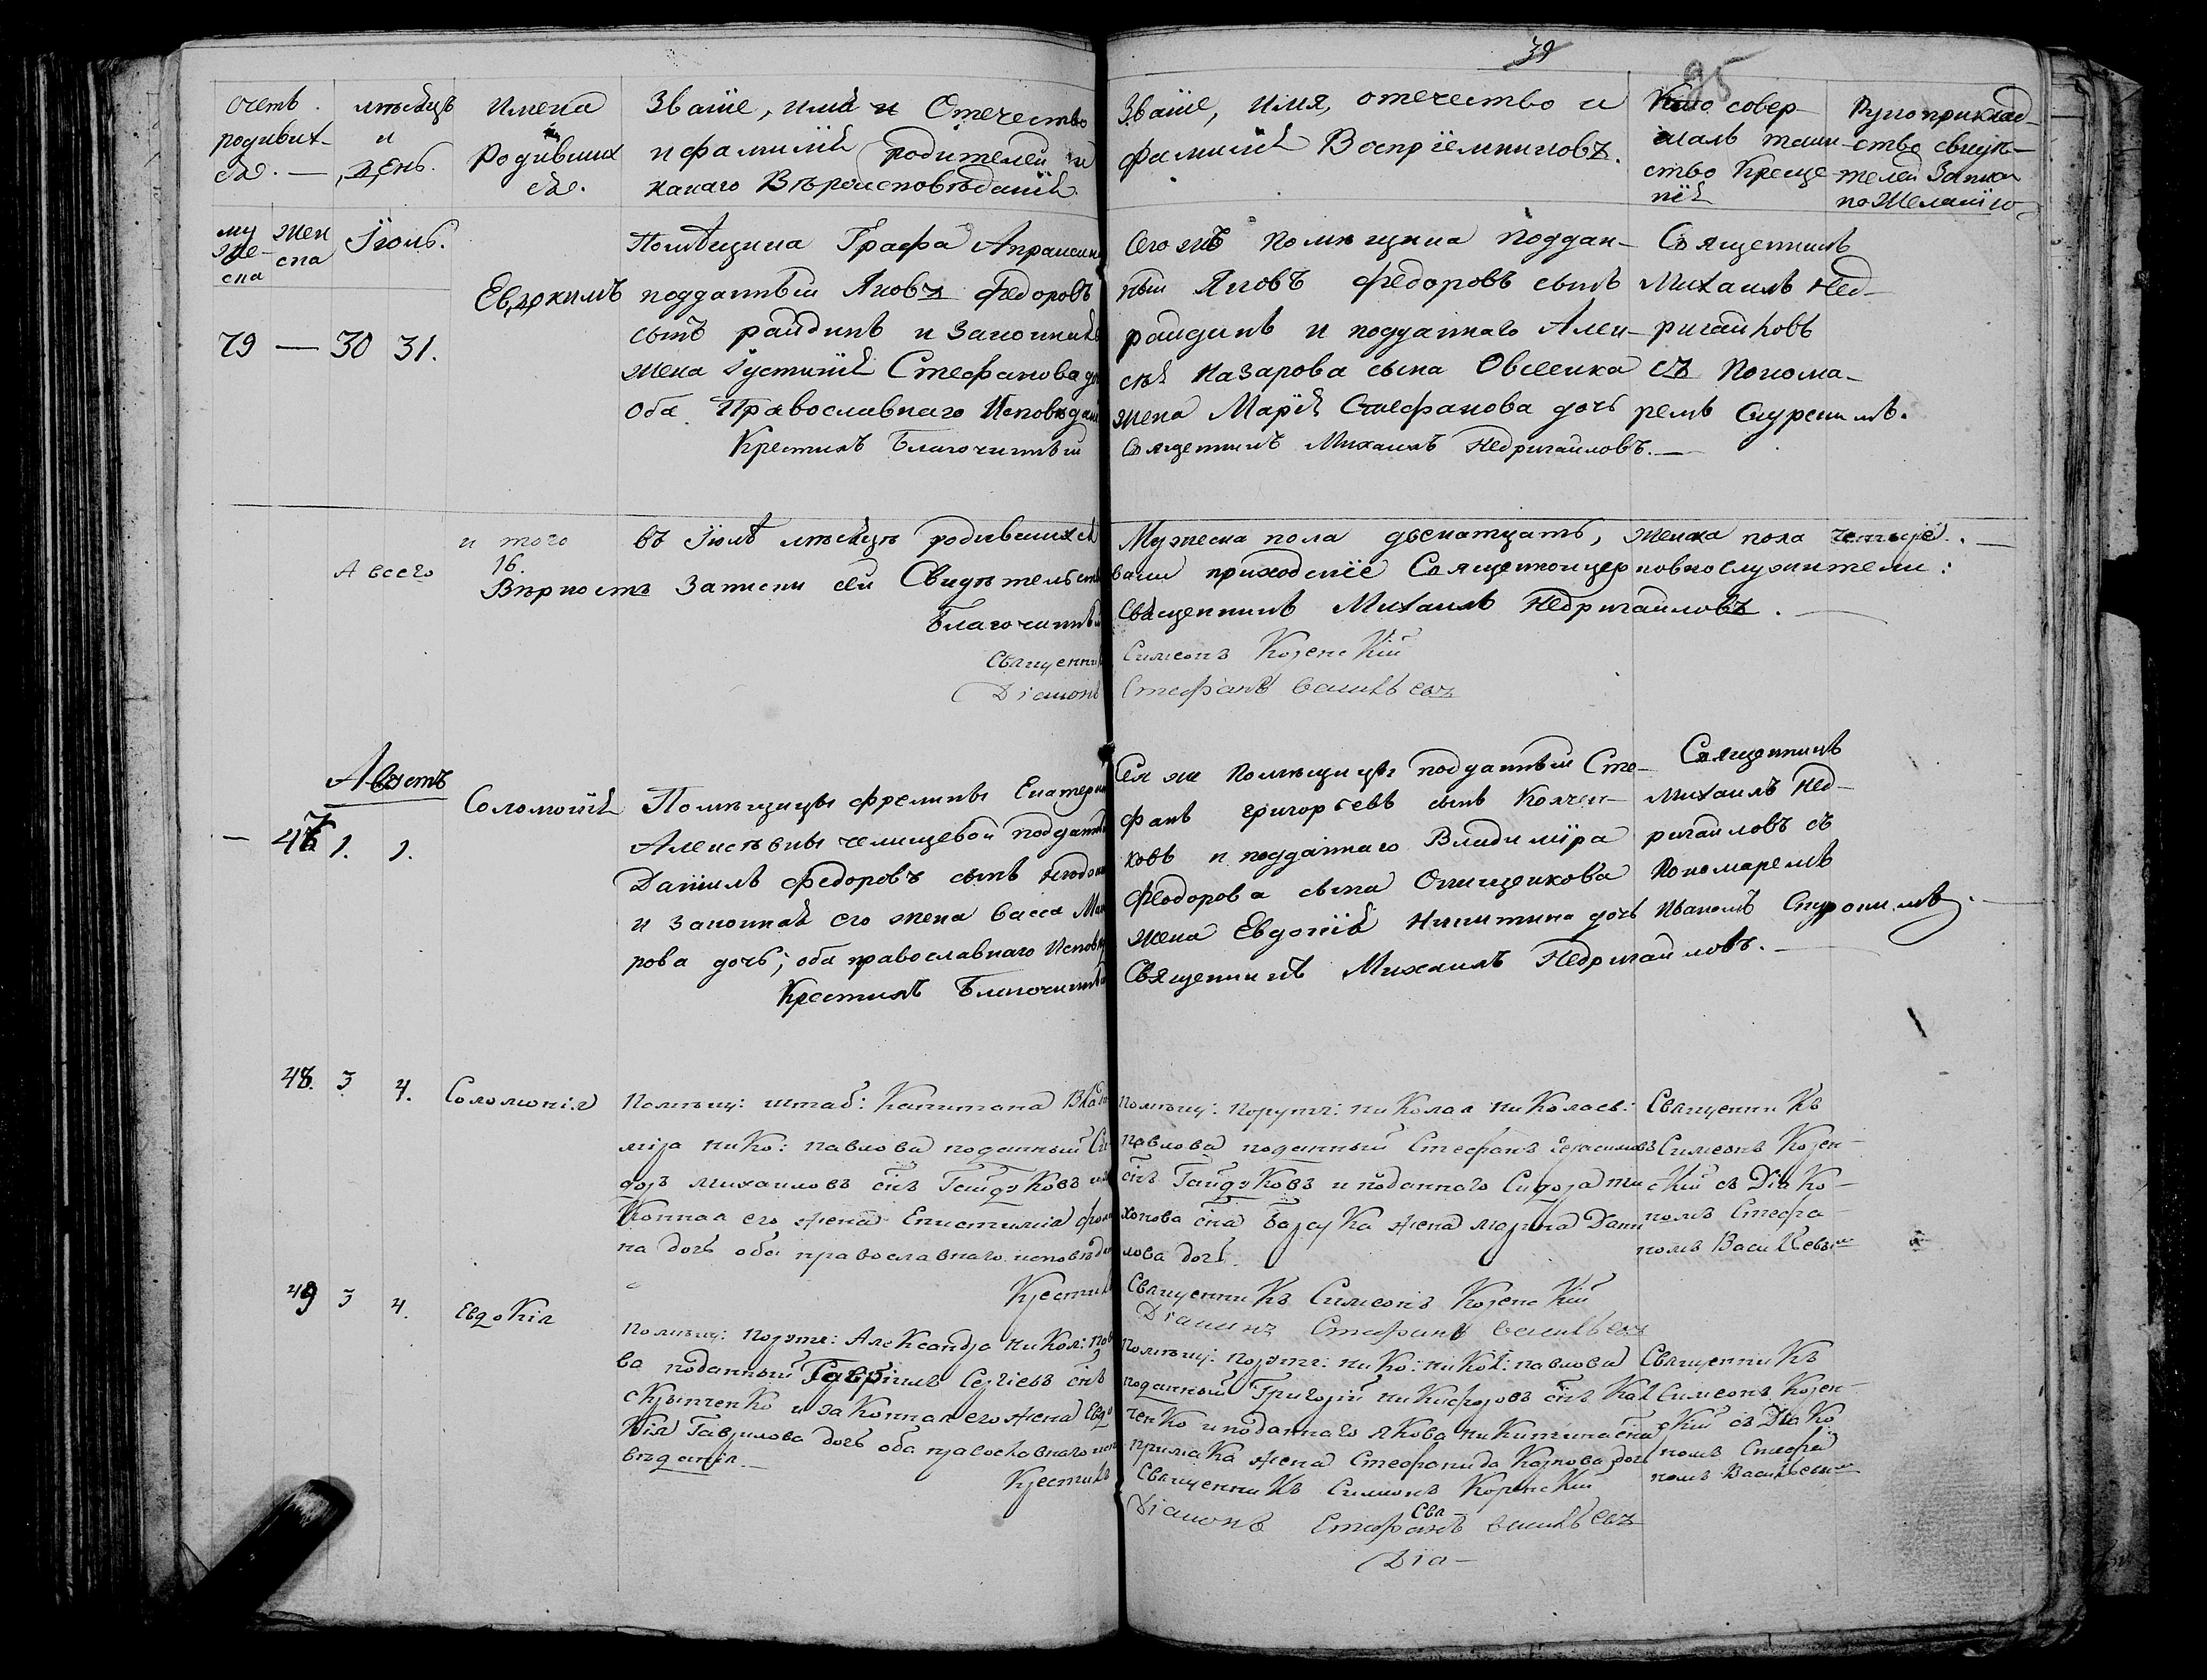 39
95
Счетъ родивих- ся. —
мѣсяцъ и день.
Имена Родивших ся.
Званіе, имя и Отечество
и фамилія родителей и
какаго Вѣроисповѣданія
Званіе, имя, отечество и
фамилія Воспріемниковъ.
Кто совер
шалъ таин
ство Креще
нія
Рукоприклад-
ство свидѣ-
телей Записи
по Желанію
му
же-
ска
жен
ска
Іюль.
79 — 30 31.
Евдокимъ
Помѣщика Графа Апраксина
подданный Яковъ Федоровъ
сынъ райдинъ и Законная
жена Іустинія Стефанова до
Оба Православнаго Исповѣдані
Крестилъ Благочинный
Сего жъ помѣщика поддан-
ный Яковъ Федоровъ сынъ
райдинъ и подданнаго Алек-
сѣя Назарова сына Овсеенка
жена Марія Стефанова дочь
Священникъ Михаилъ Недригайловъ. —
Священникъ
Михаилъ Нед-
ригайловъ
съ Понома-
ремъ Скурскимъ.
и того въ Іюлѣ мѣсяцѣ родившихся
Мужеска пола двенатцать, женска пола четыре. —
А всего 16.
Вѣрность Записки сей Свидѣтельств
вали приходскіе Священноцерковнослужители:
Благочинный
Священникъ Михаилъ Недригайловъ. —
Священник Симеонъ Коренскій
Діаконъ Стефанъ Васильевъ
Августъ
— 47 1. 1.
Соломонія
Помѣщицы фрелины Екатерины
Алексѣвны челищевой подданный
Даніилъ Федоровъ сынъ
и Законная его жена Васса Мака
рова дочь; оба православнаго Исповѣ
Крестилъ Благочинный
Сея жъ помѣщицы подданный Сте-
фанъ григорьевъ сынъ Колчен-
ковъ и подданнаго Владиміра
Феодорова сына Онищенкова
жена Евдокія Никитина дочь
Священникъ Михаилъ Недригайловъ. —
Священникъ
Михаилъ Нед-
ригайловъ съ
Пономаремъ
Иваномъ Скурскимъ.
48. 3 4. Соломонія
Помѣщ: штаб: Капитана Влади
міра Нико: павлова поданный Си
доръ Михаиловъ снъ Гайдуковъ иза
Конная его жена Епистимія фоми
на дочь оба православнаго исповѣдан
Крестилъ
Помѣщ: Порутч: николая николаев:
павлова поданный Стефанъ Герасимовъ
снъ Гайдуковъ и поданного Сидора ти
хонова сна Барсука жена марина Дани
лова дочь.
Священникъ Симеонъ Коренскій
Діаконъ Стефанъ Васильевъ
Священникъ
Симеонъ Корен-
скій съ Діако-
номъ Стефа
номъ Васильевым
49 3 4. Евдокія
Помѣщ: Порутч: Александра никол: пав
ва поданный Гавріилъ Сергіевъ снъ
скрыпченко и законная его жена Евдо
кія Гаврилова дочь оба православнаго испо
вѣданія. —
Крестилъ
Помѣщ: порутч: нико: никол: павлова
поданный Григорій никифоровъ снъ Кал
ченко и поданнаго якова никитина сна
примака жена Стефанида Карпова дочь
Священникъ Симеонъ Коренскій
Діаконъ Стефанъ Васильевъ
Свя —
Діа —
Священникъ
Симеонъ Корен-
скій съ Діако
номъ Стефа
номъ Васильевым